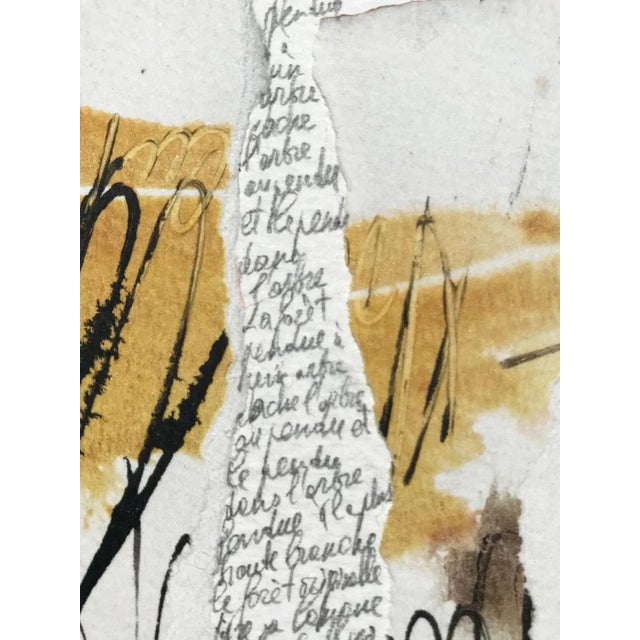 pendue
à
un
arbre
cache
l'arbre
au pendu
et le pendu
dans
l'arbre
La forêt
pendue à
un arbre
cache l'arbre
au pendu et
le pendu
dans l'arbre
pendue
haute branche
le forêt originelle